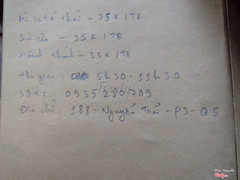 - 35K 1 Tô
Sủi cảo - 35K 1 Tô
Hoành thánh - 35K 1 Tô
Thời gian : 5h30 - 11h30
SĐT : 0935280709
Địa chỉ : 188 - Nguyễn Trãi - P3 - Q5